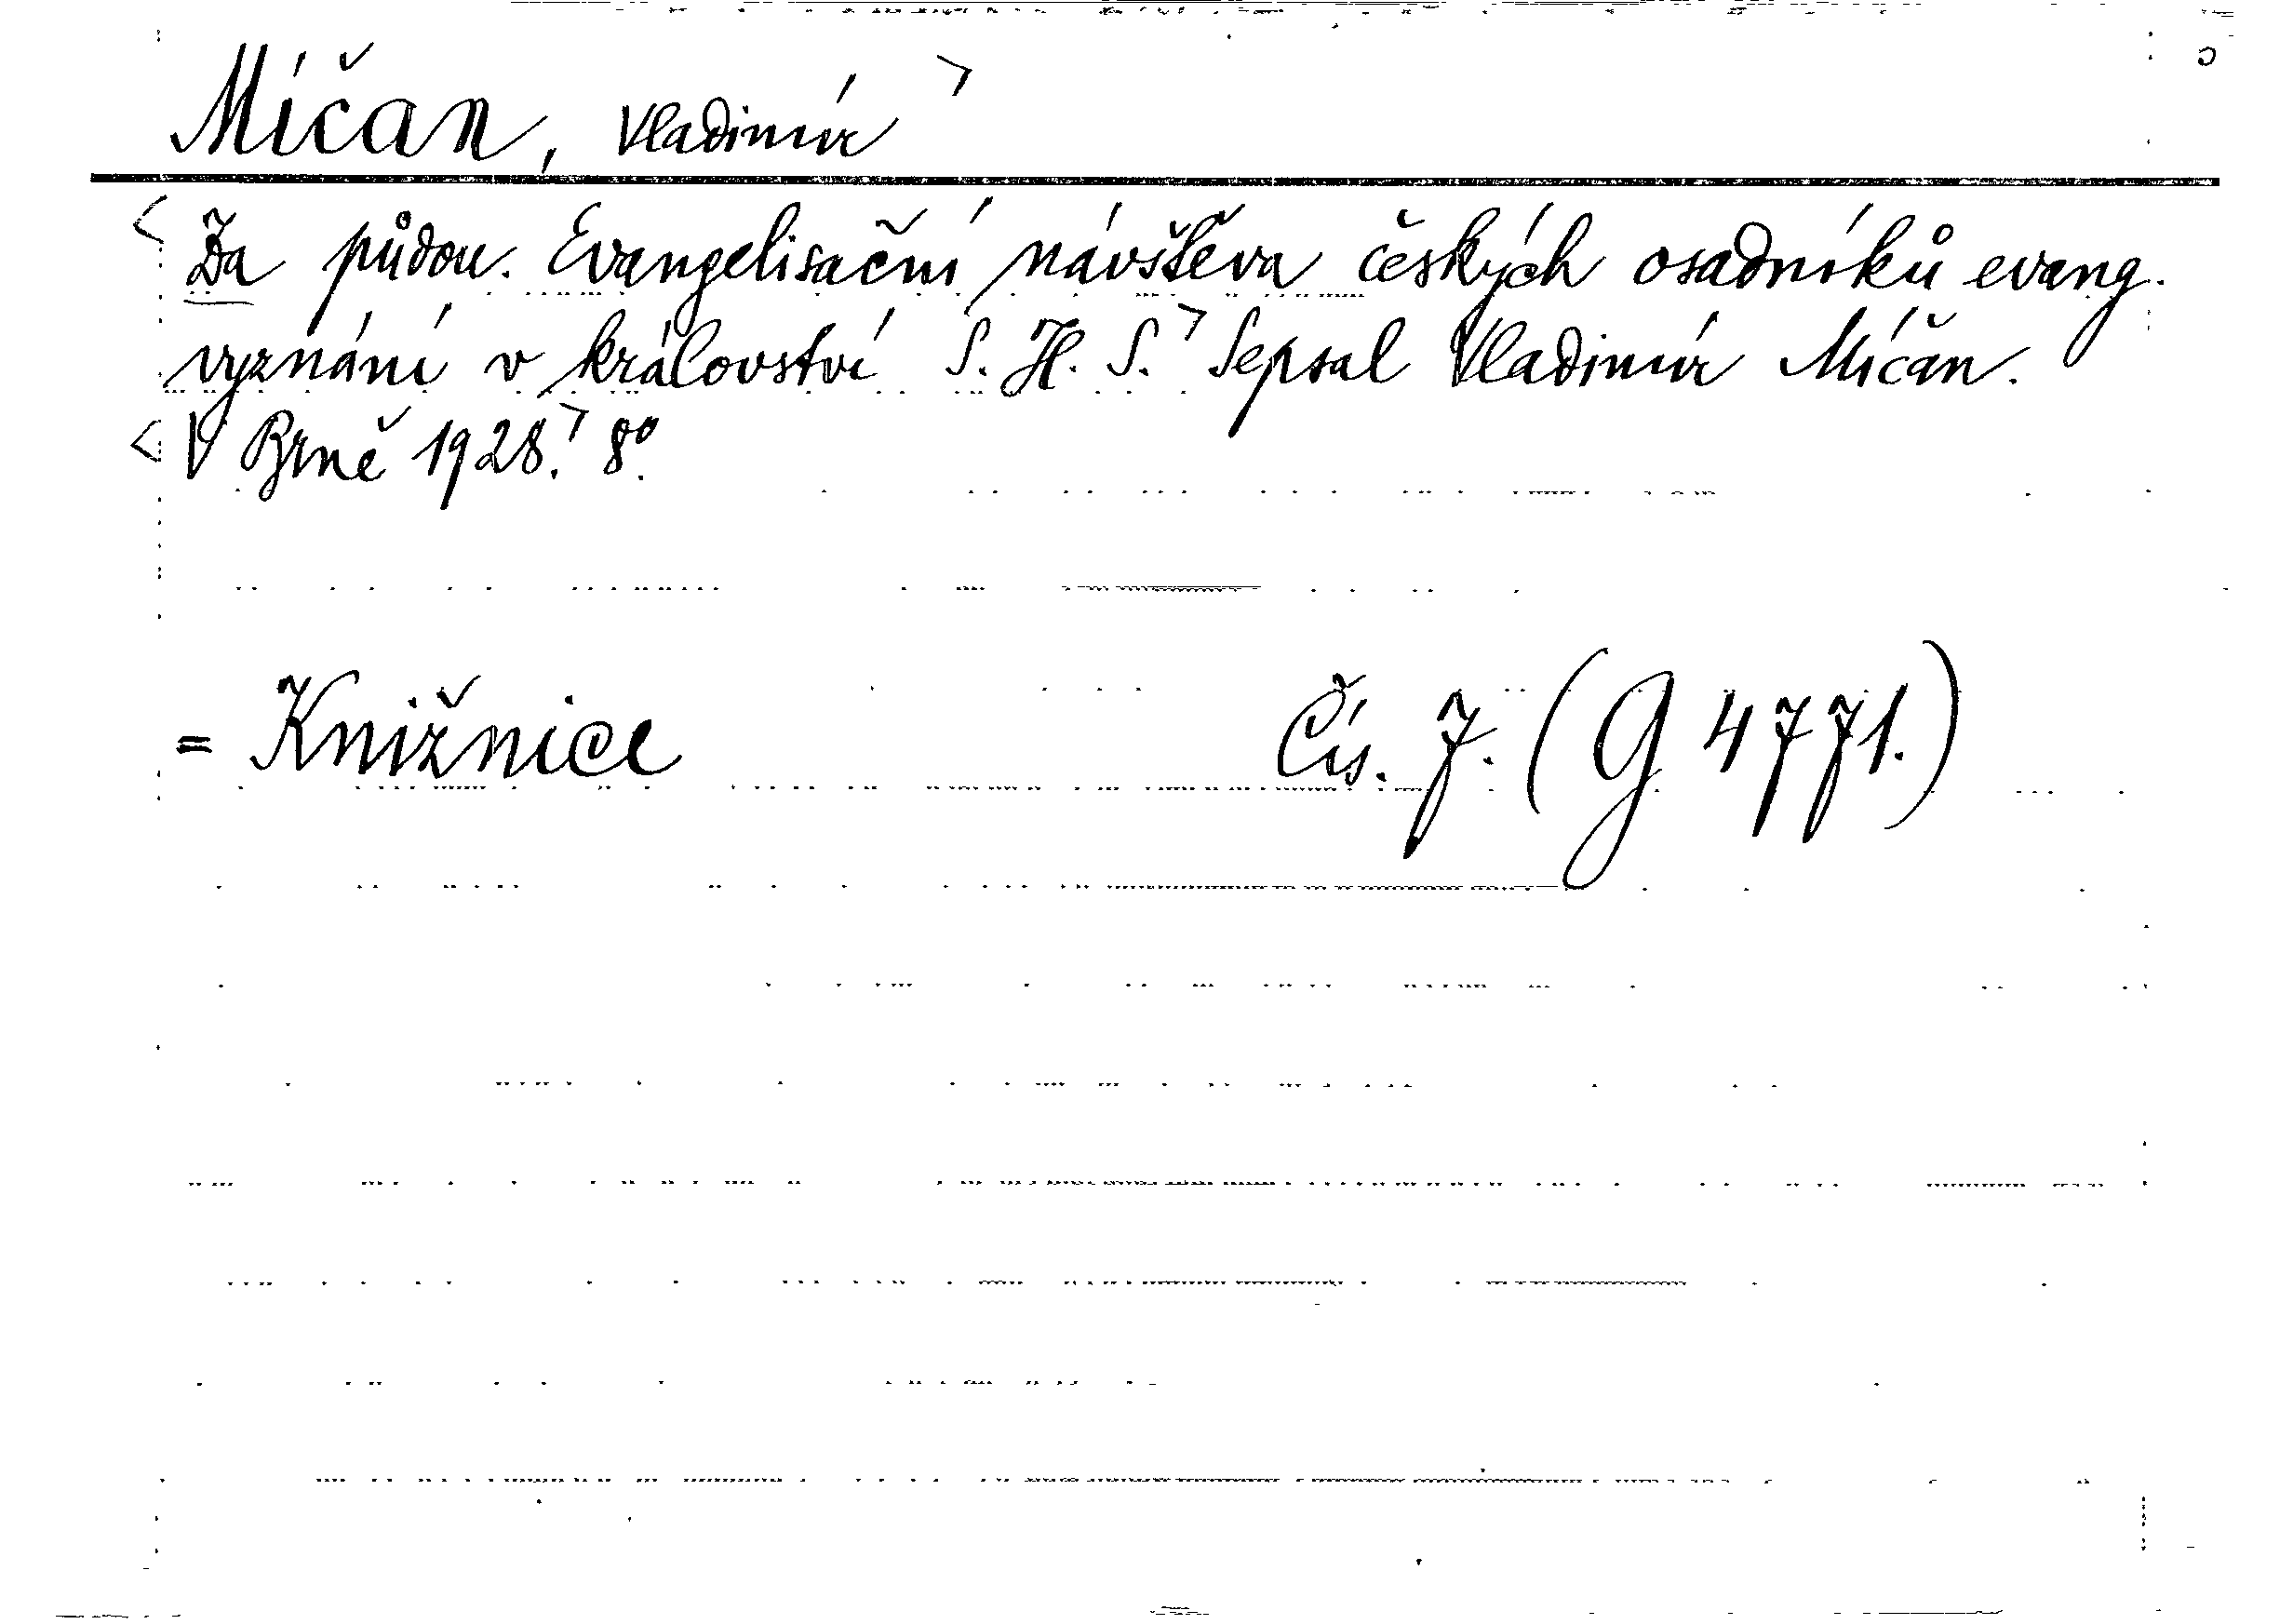 Míčan, Vladimír
Za půdou. Evangelisační návštěva českých osadníků evang.
vyznání v království S. H. S. Sepsal Vladimír Míčan.
V Brně 1928. 8°.
= Knižnice Čís. 7. (G 4771.)